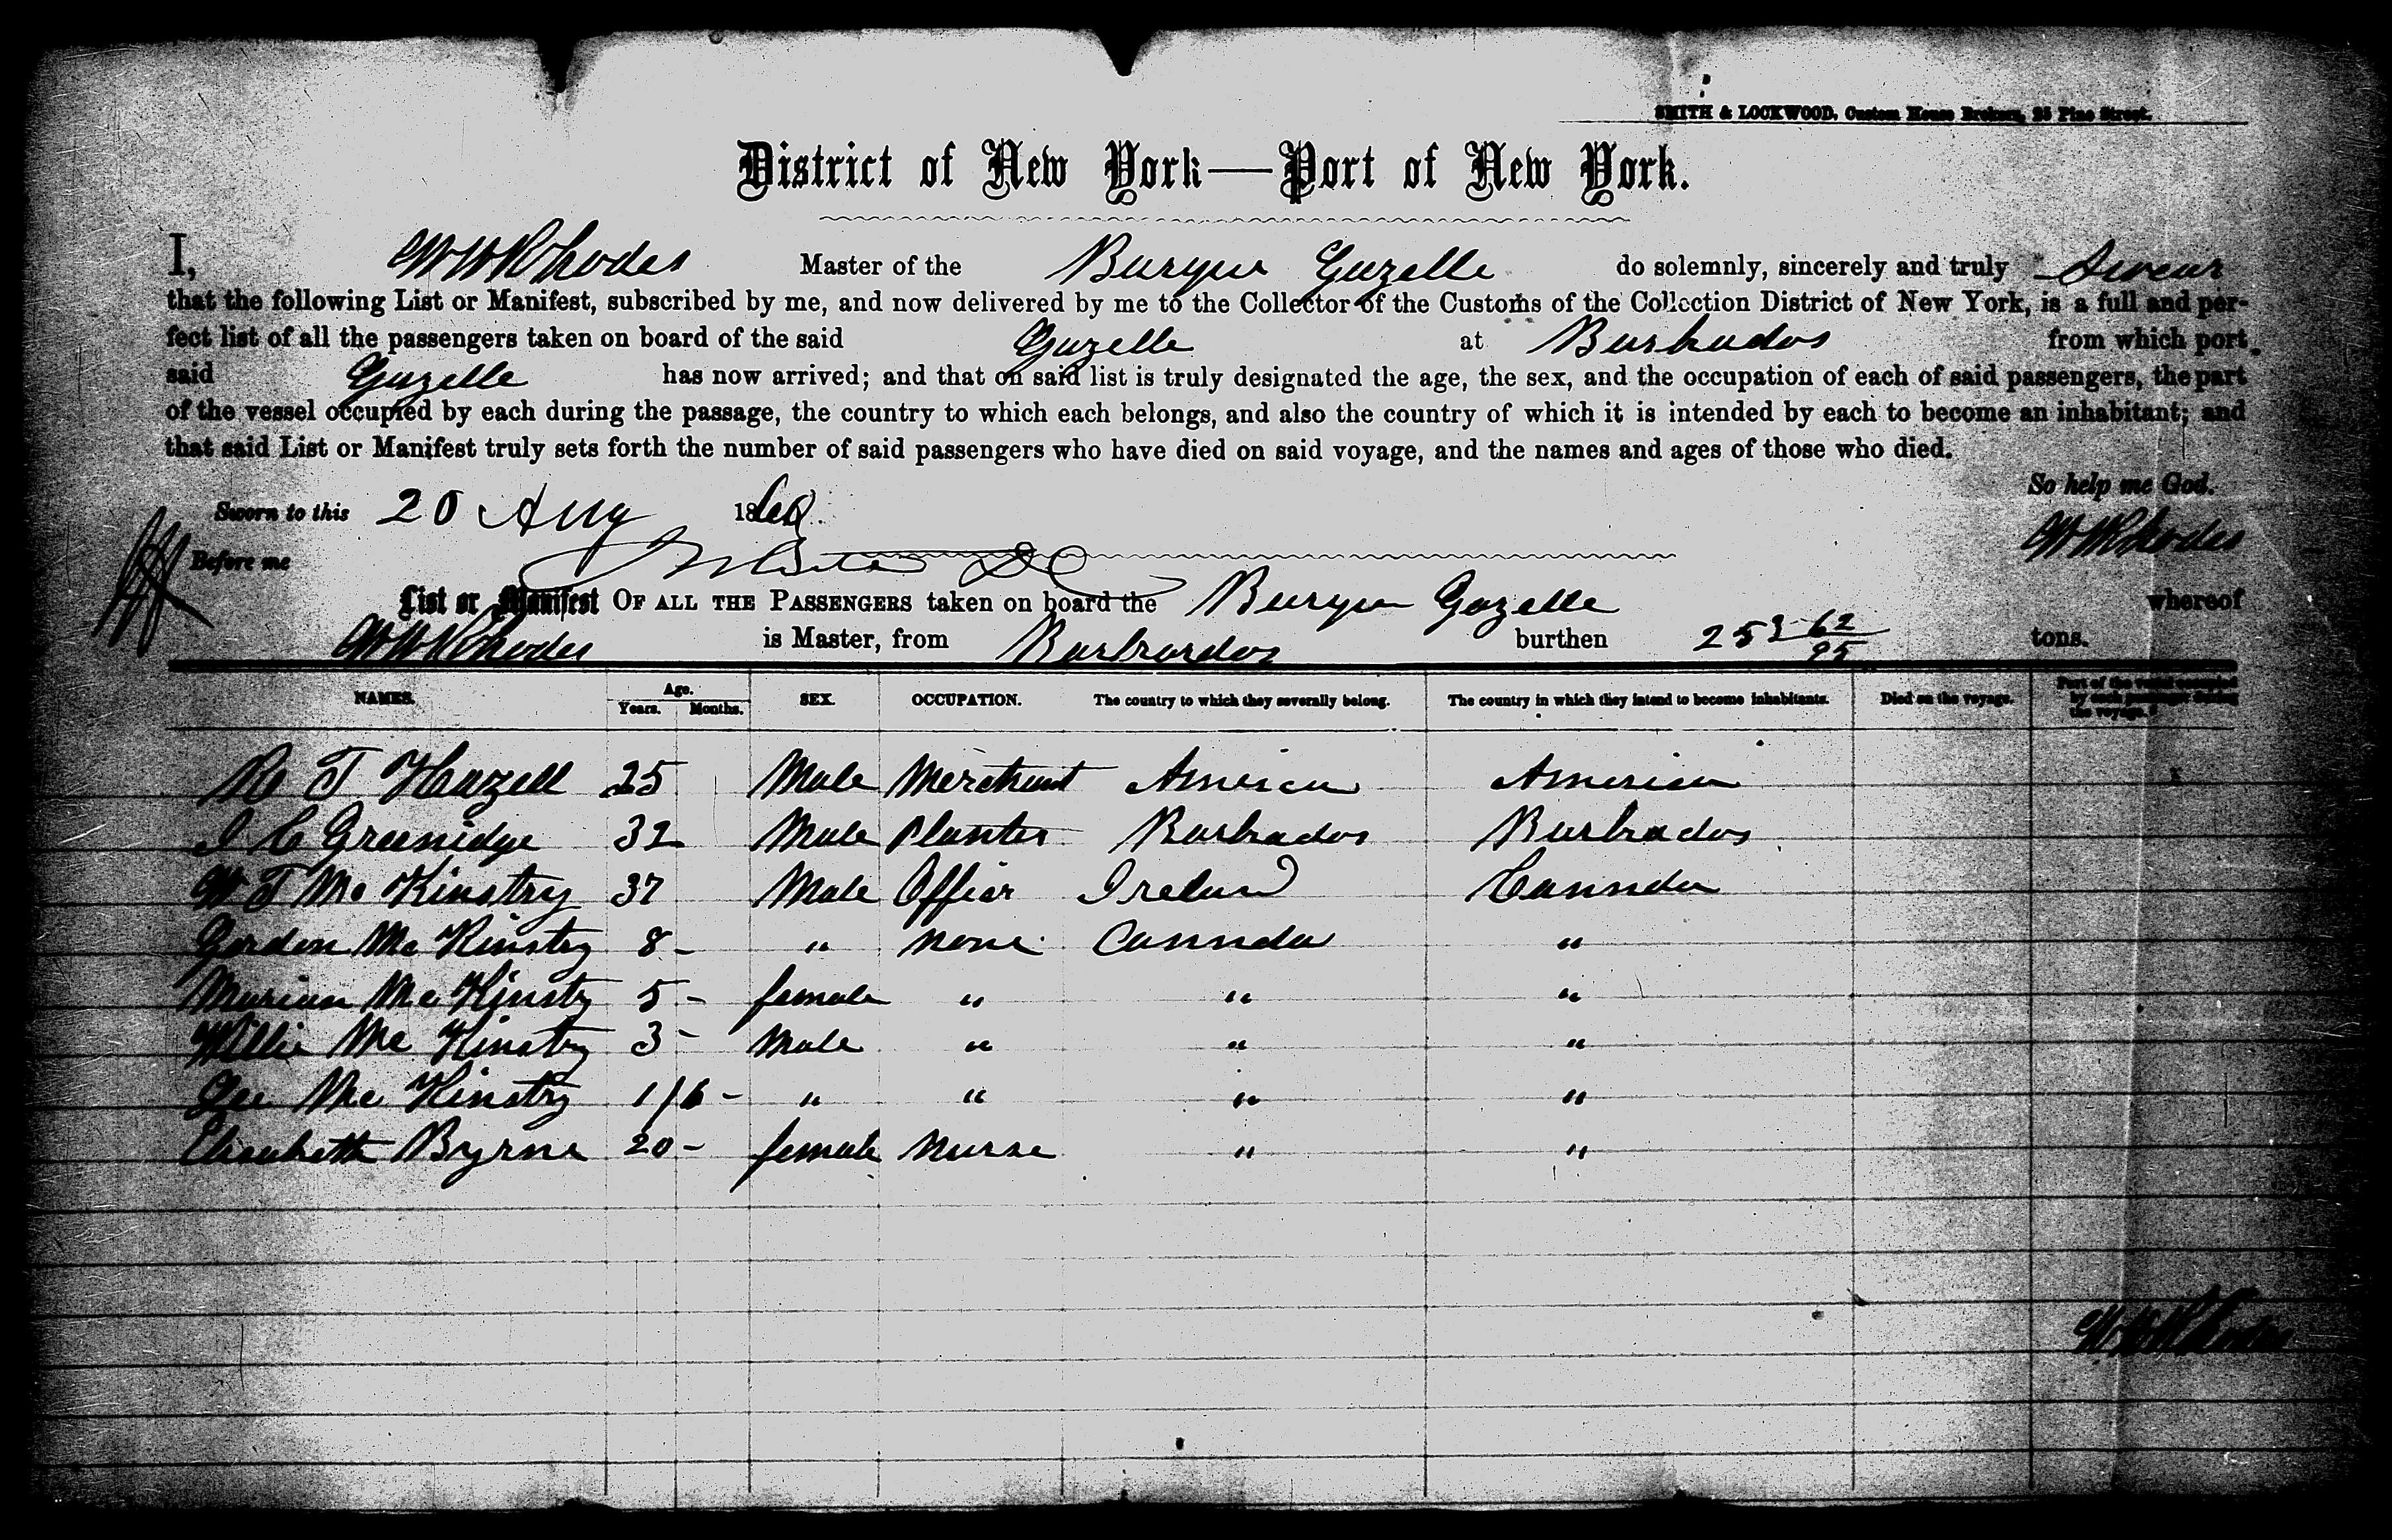 SMITH & LOCKWOOD, Custom House Brokers, 25 Pine Street.
District of New York—Port of New York.
I, W W Rhodes Master of the Barque Gazelle do solemnly, sincerely and truly Swear
that the following List or Manifest, subscribed by me, and now delivered by me to the Collector of the Customs of the Collection District of New York, is a full and per-
fect list of all the passengers taken on board of the said Gazelle at Barbados from which port
said Gazelle has now arrived; and that on said list is truly designated the age, the sex, and the occupation of each of said passengers, the part
of the vessel occupied by each during the passage, the country to which each belongs, and also the country of which it is intended by each to become an inhabitant; and
that said List or Manifest truly sets forth the number of said passengers who have died on said voyage, and the names and ages of those who died.
So help me God.
Sworn to this 20 Aug 1860
W W Rhodes
Before me
List or Manifest OF ALL THE PASSENGERS taken on board the Barque Gazelle whereof
W W Rhodes is Master, from Barbados burthen 253 62/95 tons.
NAMES. Age. Years. Months. SEX. OCCUPATION. The country to which they severally belong. The country in which they intend to become inhabitants. Died on the voyage. Part of the vessel occupied by each passenger during the voyage.
R T Hazell 25 Male Merchant America America
I C Greenidge 32 Male Planter Barbados Barbados
W T Mc Kinstry 37 Male Officer Ireland Cannada
Gordon Mc Kinstry 8 - " none Cannada "
Marian Mc Kinstry 5 - female " " "
Willie Mc Kinstry 3 - Male " " "
Geo Mc Kinstry 1/6 - " " " "
Elisabeth Byrne 20 - female Nurse " "
W W Rhodes